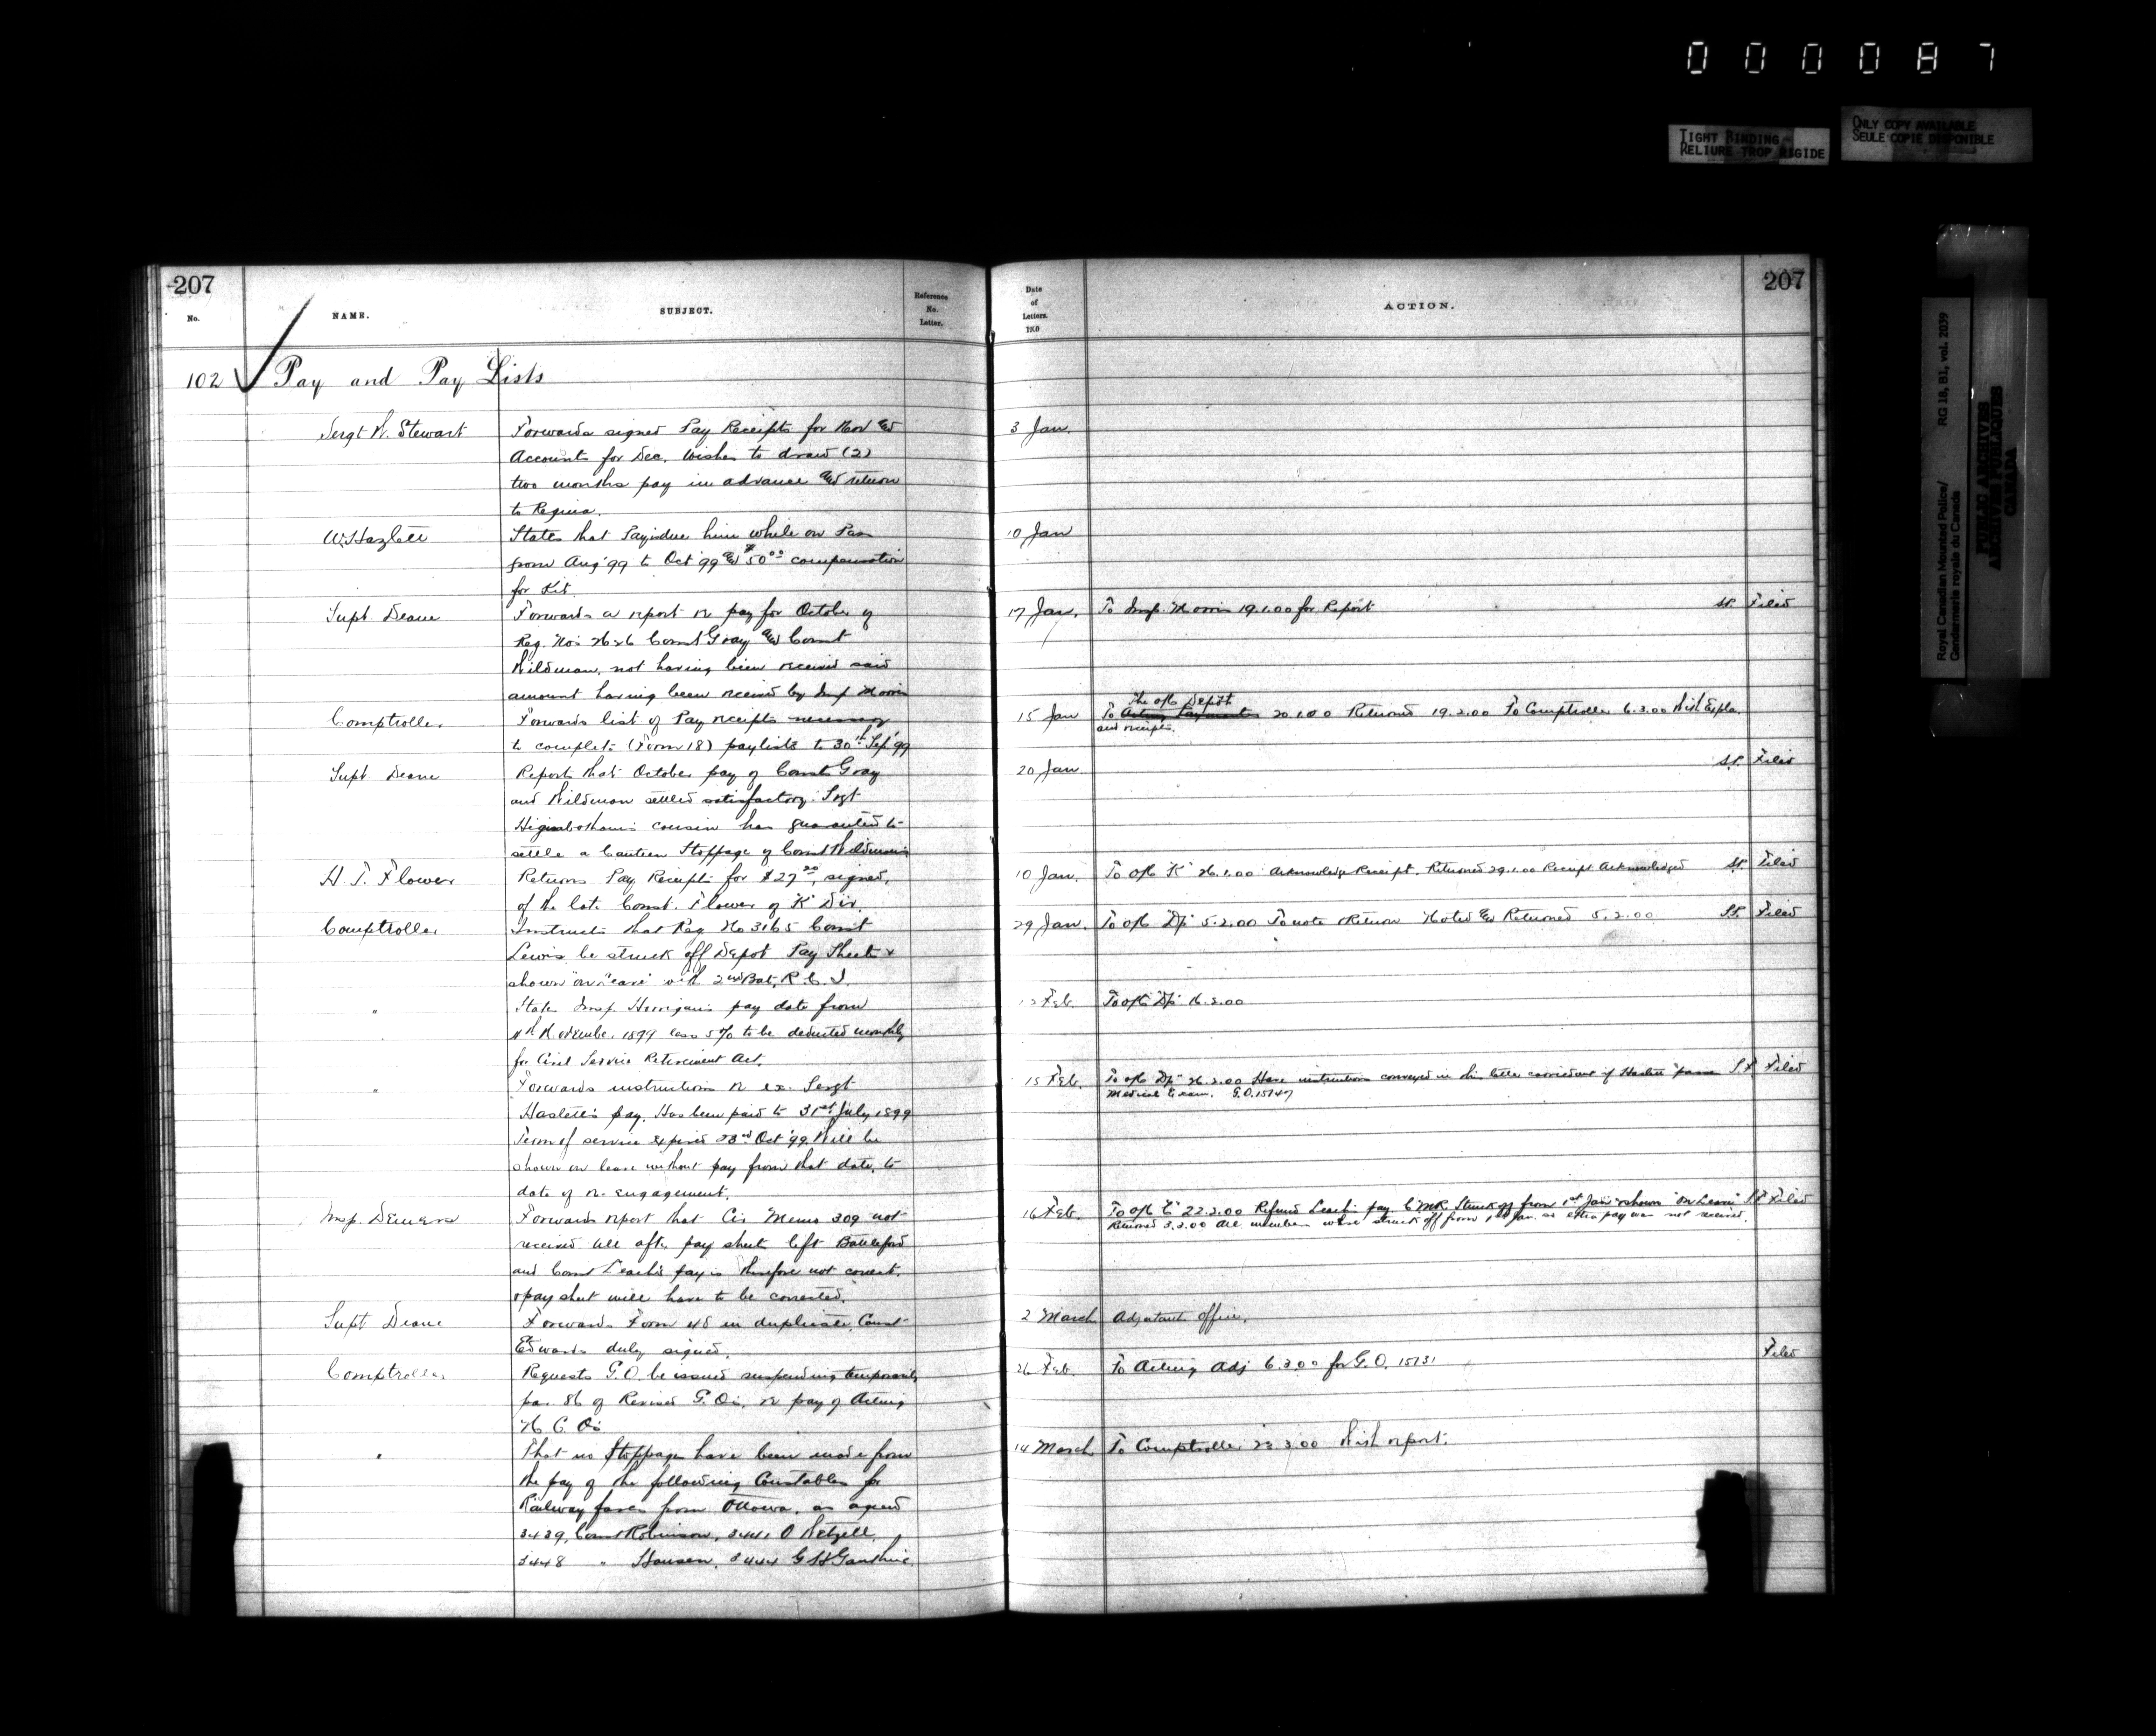 0 0 0 0 8 7
TIGHT BINDING
RELIURE TROP RIGIDE
ONLY COPY AVAILABLE
SEULE COPIE DISPONIBLE
Royal Canadian Mounted Police/ RG 18, B1, vol. 2039
Gendarmerie royale du Canada
PUBLIC ARCHIVES
ARCHIVES PUBLIQUES
CANADA
207
No. NAME. SUBJECT. Reference No. Letter.
102 Pay and Pay Lists
Sergt W. Stewart Forwards signed Pay Receipts for Nov and
Accounts for Dec. Wishes to draw (2)
two months pay in advance and return
to Regina.
W. Hazlett States that Pay is due him while on Pass
from Aug '99 to Oct '99 and $50.00 compensation
for Kit.
Supt Deane Forwards a report re pay for October of
Reg. Nos Const Gray and Const
Wildman, not having been received said
amount having been received by Insp Morris
Comptroller Forwards list of Pay receipts necessary
to complete (Form 18) paylists to 30th Sep '99
Supt Deane Reports that October pay of Const Gray
and Wildman settled satisfactory. Sergt
cousin has guaranteed to
settle a Canteen Stoppage of Const Wildman's
H. T. Flower Returns Pay Receipts for $27, signed,
of the late Const. Flower of "K" Div.
Comptroller Instructs that Reg No 3165 Const
Lewis be struck off Depot Pay Sheets &
shown "on leave" with 2nd Bat, R.C.I.
" States Insp. pay date from
November, 1899 less 5% to be deducted monthly
for Civil Service Retirement Act.
" Forwards instructions re ex-Sergt
Haslett's pay. Has been paid to 31st July, 1899
Term of service expired 23rd Oct '99. Will be
shown on leave without pay from that date, to
date of re-engagement.
Insp. Demers Forwards report that Cir Memo 309 not
received till after pay sheet left Battleford
and Const Leach's pay is therefore not correct.
& pay sheet will have to be corrected.
Supt Deane Forwards Form 48 in duplicate, Const
Edwards duly signed.
Comptroller Requests G.O. be issued suspending temporarily
par. 86 of Revised G.Os, re pay of Acting
N.C.Os.
" That no Stoppages have been made from
the pay of the following Constables for
Railway fares from Ottawa, as agreed
3439, Const Robinson, 3441 O Wetzell,
3448 " Hansen, 3444 G H Gauthier.
207
Date of Letters. 1900 ACTION.
3 Jan.
10 Jan
17 Jan. To Insp. Morris 19.1.00 for Report Filed
The o/c Depôt
15 Jan To Acting Paymaster 20.1.00 Returned 19.2.00 To Comptroller 6.3.00 With Expla.
and receipts.
20 Jan Filed
10 Jan. To o/c "K" 26.1.00 Acknowledge Receipt. Returned 29.1.00 Receipt Acknowledged Filed
29 Jan. To o/c "Dp" 5.2.00 To note & Return Noted and Returned 5.2.00 Filed
Feb. To o/c "Dp"
15 Feb. To o/c "Dp" 26.2.00 Have instructions conveyed in this letter carried out if Haslett "passes Filed
Medical Exam. G.O. 15147
16 Feb. To o/c "C" 22.2.00 Refund Leach's pay. Struck off from 1st Jan & shown "On Leave" Filed
Returned 3.3.00 All members were struck off from 1st Jan. as extra pay was not received.
2 March Adjutants office.
26 Feb. To Acting Adj 6.3.00 for G.O. 15131 Filed
14 March To Comptroller 22.3.00 With report.